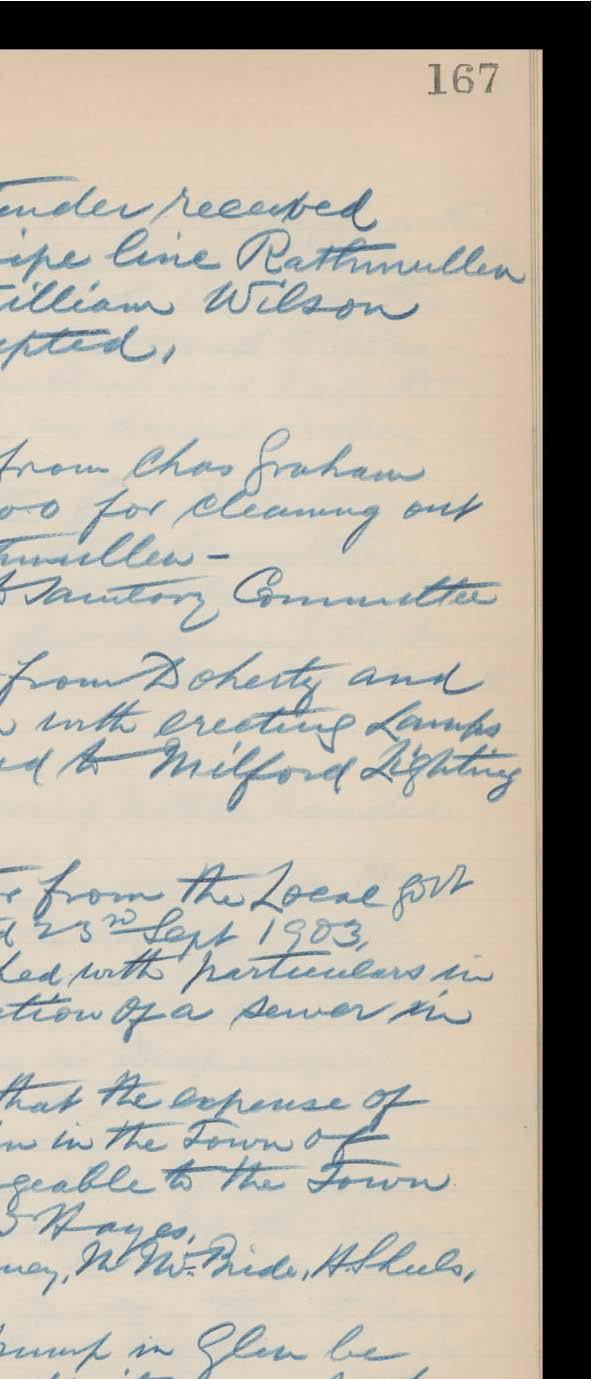 167
ender received
ipe line Rathmullen
illiam Wilson
epted,
from Chas Graham
00 for cleaning out
hmullen -
Sanitory Committee
from Doherty and
with erecting Lamps
ed to Milford Lighting
r from the Local govt
d 23rd Sept 1903,
hed with particulars in
ction of a sewer in
that the expense of
in the Town of
geable to the Town
Hayes,
ney, McBride, H Sheils,
pump in Glen be